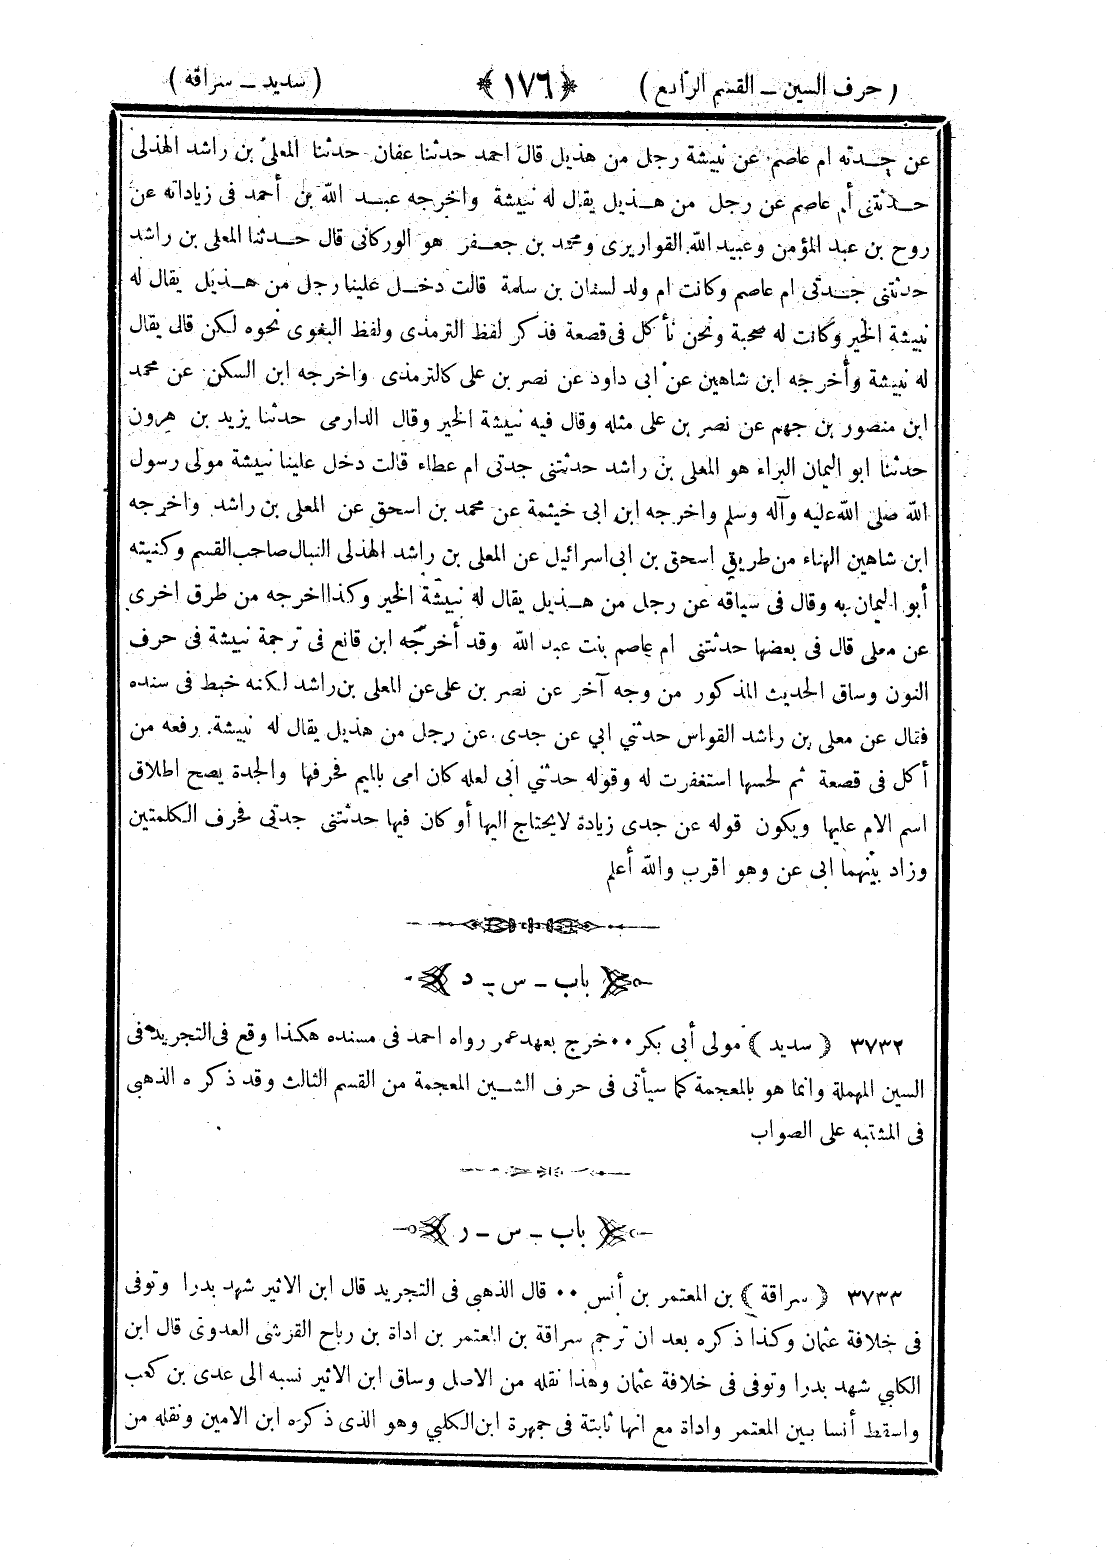 ( حرف السين ــ القسم الرابع ) ﴿ ١٧٦ ﴾ ( سديد ــ سراقة )
عن جدته ام عاصم عن نبيشة رجل من هذيل قال احمد حدثنا عفان حدثنا المعلى بن راشد الهذلى
حدثتنى أم عاصم عن رجل من هذيل يقال له نبيشة واخرجه عبد الله بن أحمد فى زياداته عن
روح بن عبد المؤمن وعبيد الله القواريرى ومحمد بن جعفر هو الوركانى قال حدثنا المعلى بن راشد
حدثتنى جدتى ام عاصم وكانت ام ولد لسفان بن سلمة قالت دخل علينا رجل من هذيل يقال له
نبيشة الخير وكانت له صحبة ونحن نأكل فى قصعة فذكر لفظ الترمذى ولفظ البغوى نحوه لكن قال يقال
له نبيشة وأخرجه ابن شاهين عن ابى داود عن نصر بن على كالترمذى واخرجه ابن السكن عن محمد
ابن منصور بن جهم عن نصر بن على مثله وقال فيه نبيشة الخير وقال الدارمى حدثنا يزيد بن هرون
حدثنا ابو اليمان البراء هو المعلى بن راشد حدثتنى جدتى ام عطاء قالت دخل علينا نبيشة مولى رسول
الله صلى الله عليه وآله وسلم واخرجه ابن ابى خيثمة عن محمد بن اسحق عن المعلى بن راشد واخرجه
ابن شاهين الهناء من طريق اسحق بن ابى اسرائيل عن المعلى بن راشد الهذلى النبال صاحب القسم وكنيته
أبو اليمان به وقال فى سياقه عن رجل من هذيل يقال له نبيشة الخير وكذا اخرجه من طرق اخرى
عن معلى قال فى بعضها حدثتنى ام عاصم بنت عبد الله وقد أخرجه ابن قانع فى ترجمة نبيشة فى حرف
النون وساق الحديث المذكور من وجه آخر عن نصر بن على عن المعلى بن راشد لكنه خبط فى سنده
فقال عن معلى بن راشد القواس حدثني ابي عن جدى عن رجل من هذيل يقال له نبيشة رفعه من
أكل فى قصعة ثم لحسها استغفرت له وقوله حدثني ابى لعله كان امى بالميم فحرفها والجدة يصح اطلاق
اسم الام عليها ويكون قوله عن جدى زيادة لا يحتاج اليها أو كان فيها حدثتنى جدتى فحرف الكلمتين
وزاد بينهما ابى عن وهو اقرب والله أعلم
باب ــ س ــ د
٣٧٣٢ ( سديد ) مولى أبى بكر ٠٠ خرج بعهد عمر رواه احمد فى مسنده هكذا وقع فى التجريد فى
السين المهملة وانما هو بالمعجمة كما سيأتى فى حرف الشين المعجمة من القسم الثالث وقد ذكره الذهبى
فى المشتبه على الصواب
باب ــ س ــ ر
٣٧٣٣ ( سراقة ) بن المعتمر بن أنس ٠٠ قال الذهبى فى التجريد قال ابن الاثير شهد بدرا وتوفى
فى خلافة عثمان وكذا ذكره بعد ان ترجم سراقة بن المعتمر بن اداة بن رباح القرشى العدوى قال ابن
الكلبي شهد بدرا وتوفى فى خلافة عثمان وهذا نقله من الاصل وساق ابن الاثير نسبه الى عدى بن كعب
واسقط أنسا بين المعتمر واداة مع انها ثابتة فى جمهرة ابن الكلبي وهو الذى ذكره ابن الامين ونقله من